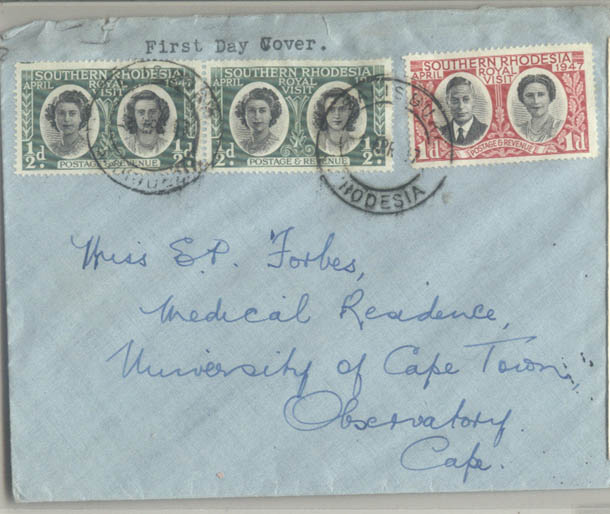 First Day Cover.
SOUTHERN RHODESIA
APRIL ROYAL VISIT 1947
½d ½d
POSTAGE & REVENUE
SOUTHERN RHODESIA
APRIL ROYAL VISIT
½d ½d
POSTAGE & REVENUE
SOUTHERN RHODESIA
APRIL ROYAL VISIT 1947
1d 1d
POSTAGE & REVENUE
RHODESIA
Miss E.P. Forbes,
Medical Residence,
University of Cape Town,
Observatory.
Cape.